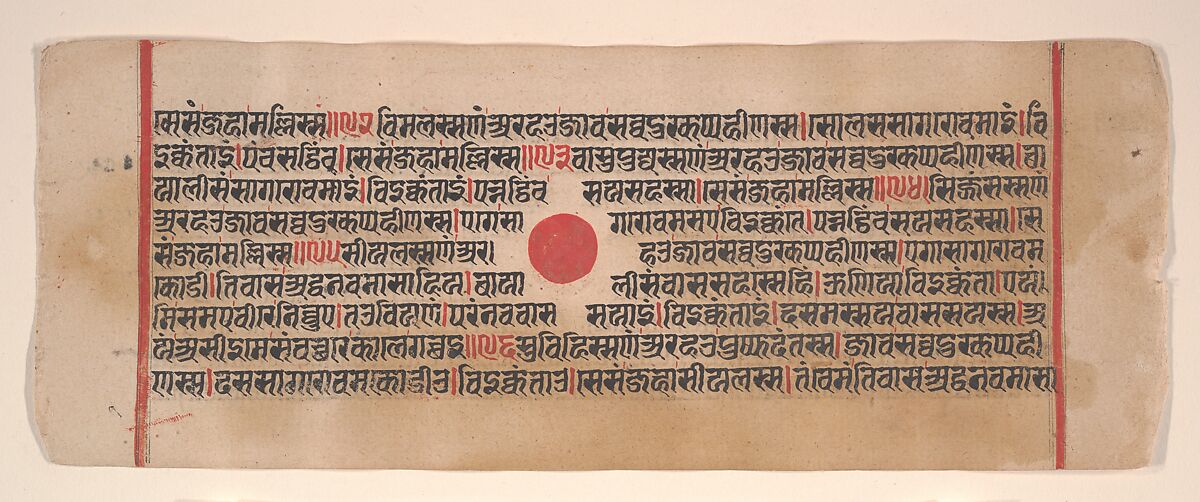 सेसं जहा मल्लिस्स॥९२ विमलस्स णं अरहओ जाव सव्वदुक्खप्पहीणस्स। सोलस सागरोवमाइं। वि
इक्कंताइं। पंचसट्ठिं च। सेसं जहा मल्लिस्स॥९३ वासुपुज्जस्स णं अरहओ जाव सव्वदुक्खप्पहीणस्स। छा
यालीसं सागरोवमाइं। विइक्कंताइं। पन्नट्ठिं च सयसहस्सा। सेसं जहा मल्लिस्स॥९४। सिज्जंसस्स णं
अरहओ जाव सव्वदुक्खप्पहीणस्स। एगे सागरोवमसए विइक्कंते। पन्नट्ठिं च सयसहस्सा। से
सं जहा मल्लिस्स॥९५ सीयलस्स णं अरहओ जाव सव्वदुक्खप्पहीणस्स। एगा सागरोवम
कोडी। तिवास अद्धनवमासाहिय। बायालीसं वाससहस्सेहिं। ऊणिया विइक्कंता। एय
मि समए वीरे निव्वुए। तओ वि य णं। परं नव वाससयाइं। विइक्कंताइं। दसमस्स य वाससयस्स। अ
यं असीइमे संवच्छरे काले गच्छइ॥९६ सुविहिस्स णं अरहओ पुप्फदंतस्स। जाव सव्वदुक्खप्पही
णस्स। दस सागरोवमकोडीओ। विइक्कंताओ। सेसं जहा सीयलस्स। तं च इमं तिवास अद्धनवमासा